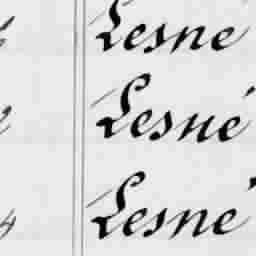 Lesné
2 Lesné
4 Lesné